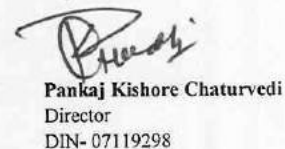 Pankaj Kishore Chaturvedi
Director
DIN- 07119298